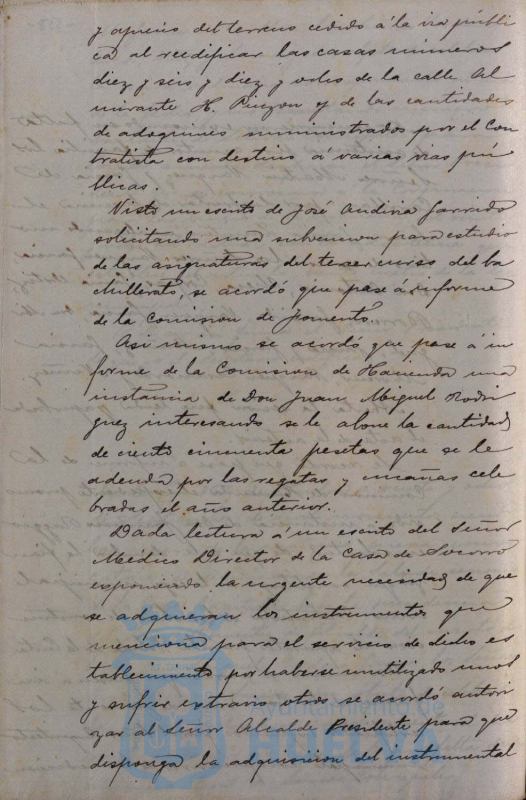 y aprecio del terreno cedido á la via públi
ca al reedificar las casas números
diez y seis y diez y ocho de la calle Al
mirante H. Pinzon y de las cantidades
de adoquines suministrados por el Con
tratista con destino á varias vias pú
blicas.
Visto un escrito de José Andivia Garrido
solicitando una subvencion para estudio
de las asignaturas del tercer curso del ba
chillerato, se acordó que pase á informe
de la Comision de Fomento.
Asi mismo se acordó que pase á in
forme de la Comision de Hacienda una
instancia de Don Juan Miguel Rodri
guez interesando se le abone la cantidad
de ciento cincuenta pesetas que se le
adeuda por las regatas y cucañas cele
bradas el año anterior.
Dada lectura á un escrito del Señor
Médico Director de la Casa de Socorro
exponiendo la urgente necesidad de que
se adquieran los instrumentos que
menciona para el servicio de dicho es
tablecimiento por haberse inutilizado unos
y sufrir extravio otros se acordó autori
zar al Señor Alcalde Presidente para que
disponga la adquisicion del instrumental
Ayuntamiento de
HUELVA